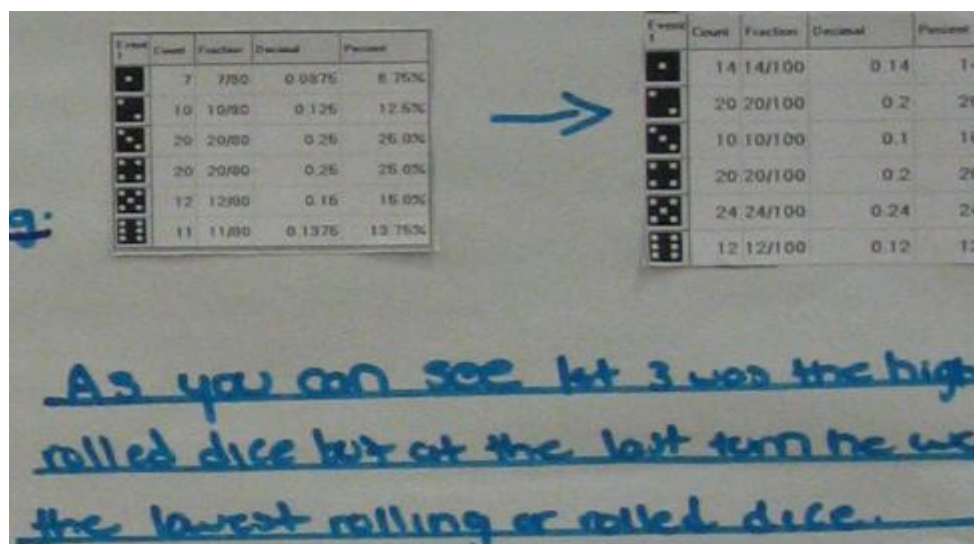 Event 1 Count Fraction Decimal Percent
7 7/80 0.0875 8.75%
10 10/80 0.125 12.5%
20 20/80 0.25 25.0%
20 20/80 0.25 25.0%
12 12/80 0.15 15.0%
11 11/80 0.1375 13.75%
Event 1 Count Fraction Decimal Percent
14 14/100 0.14
20 20/100 0.2
10 10/100 0.1
20 20/100 0.2
24 24/100 0.24
12 12/100 0.12
g:
As you can see 1st 3 was the high
rolled dice but at the last turn he
the lowest rolling or rolled dice.